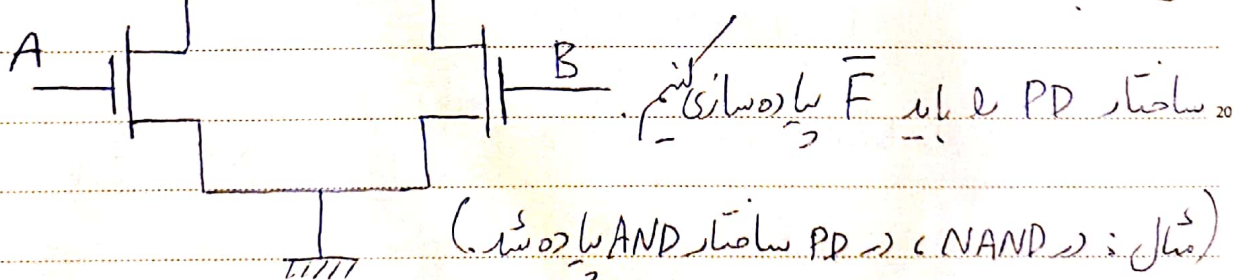 A
B
ساختار PD ← باید F̅ پیاده‌سازی کنیم.
20
(مثال: در NAND، در PD ساختار AND پیاده شد.)